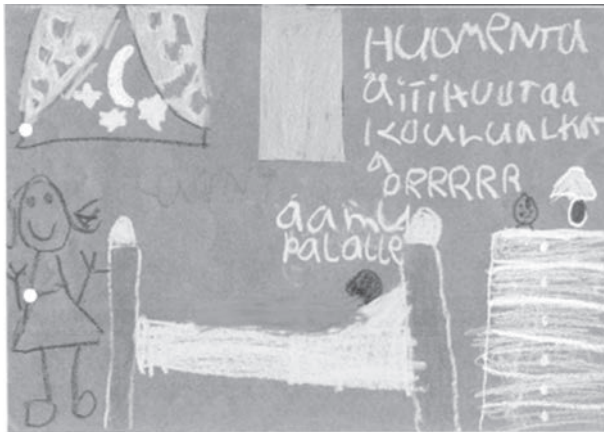 HUOMENTA
ÄITI HUUTAA
KOULU ALKAA
PRRRRR
aamu
palalle